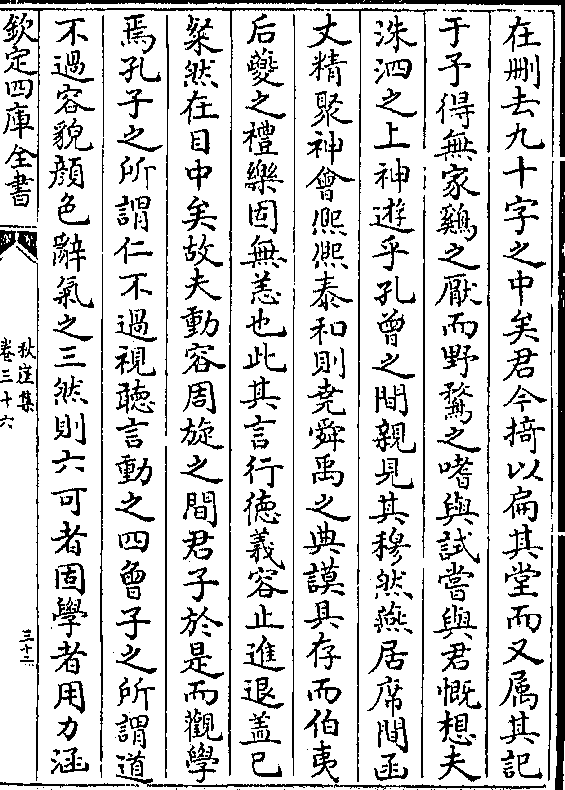 在刪去九十字之中矣君今摘以扁其堂而又属其記
于予得無家鷄之厭而野鶩之嗜與試嘗與君慨想夫
洙泗之上神遊乎孔曾之間親見其穆然燕居席間函
丈精聚神會熈熈泰和則堯舜禹之典謨具存而伯夷
后夔之禮樂固無恙也此其言行徳義容止進退盖已
粲然在目中矣故夫動容周旋之間君子於是而觀學
焉孔子之所謂仁不過視聽言動之四曾子之所謂道
不過容貌顔色辭氣之三然則六可者固學者用力涵
欽定四庫全書
秋崖集
卷三十六
三十二